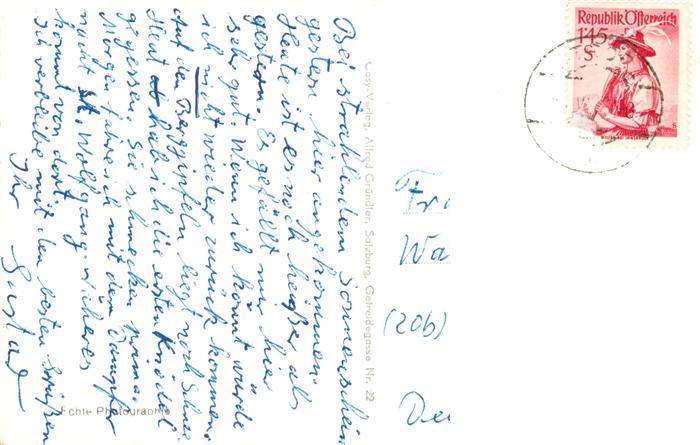 Bei strahlendem Sonnenschein
gestern hier angekommen.
Heute ist es noch heißer als
gestern. Es gefällt mir hier
sehr gut. Wenn ich könnt würde
ich nicht wieder zurück kommen.
Auf den Berggipfeln liegt noch Schnee.
Heut hab ich die ersten Knödel
gegessen. Sie schmecken prima.
Morgen fahre ich mit dem Dampfer
nach St. Wolfgang. sicheres
kommt von dort.
Ich verbleibe mit den besten Grüßen
Ihr Gustav
Echte Photographie
Cosy-Verlag, Alfred Gründler, Salzburg, Getreidegasse Nr. 22
Republik Österreich
1'45
S
Fra
Wa
(20b)